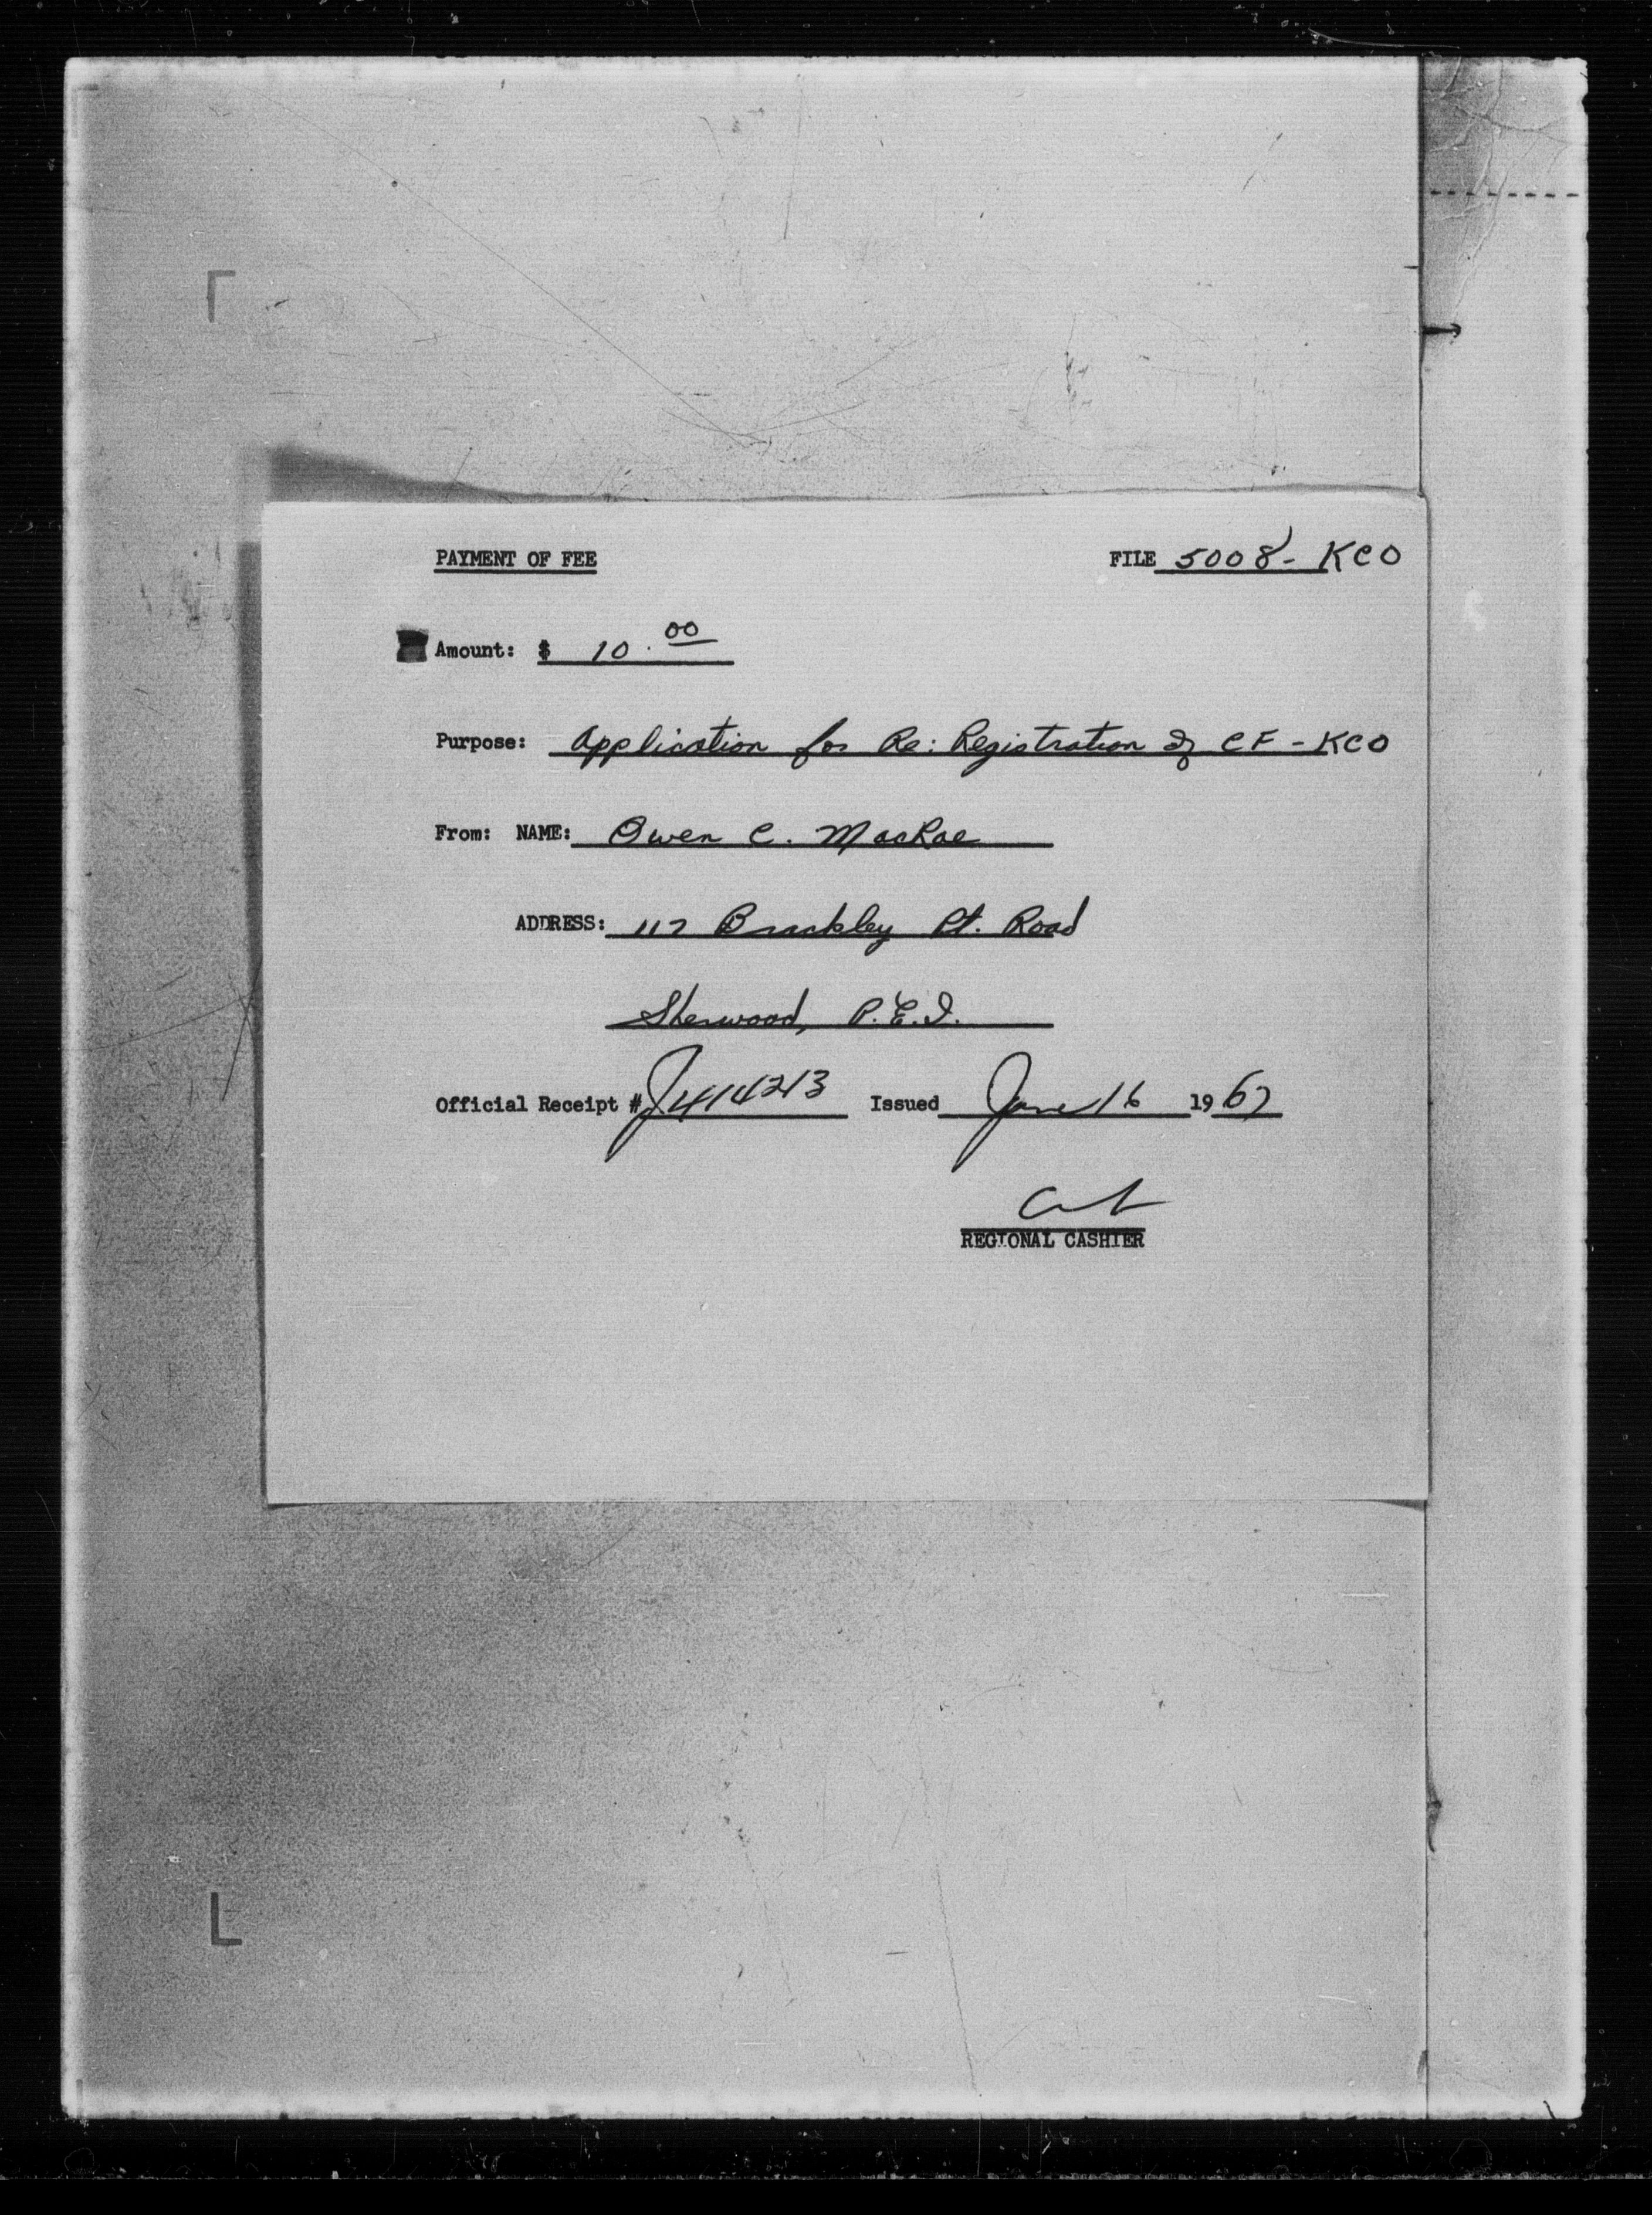 PAYMENT OF FEE FILE 5008-KCO
Amount: $ 10.00
Purpose: Application for Re: Registration of CF-KCO
From: NAME: Owen C. MacRae
ADDRESS: 117 Brackley Pt. Road
Sherwood, P.E.I.
Official Receipt # J414213 Issued June 16 1967
REGIONAL CASHIER